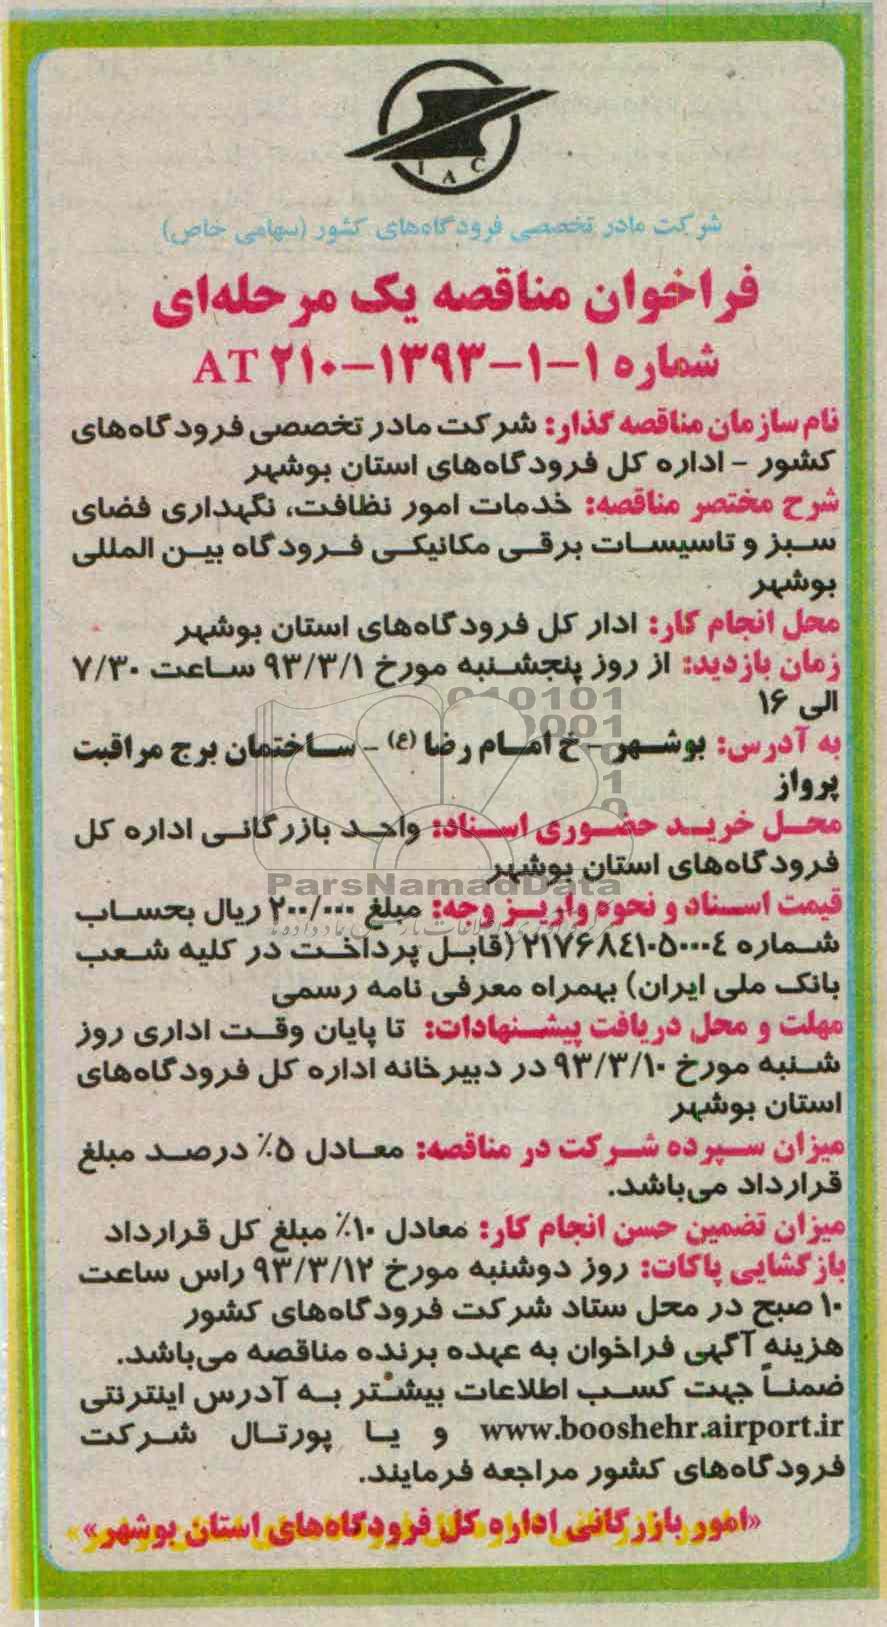 IAC
شرکت مادر تخصصی فرودگاه‌های کشور (سهامی خاص)
فراخوان مناقصه یک مرحله‌ای
شماره ۱-۱-۱۳۹۳-۲۱۰ AT
نام سازمان مناقصه گذار: شرکت مادر تخصصی فرودگاه‌های
کشور - اداره کل فرودگاه‌های استان بوشهر
شرح مختصر مناقصه: خدمات امور نظافت، نگهداری فضای
سبز و تاسیسات برقی مکانیکی فرودگاه بین المللی
بوشهر
محل انجام کار: ادار کل فرودگاه‌های استان بوشهر
زمان بازدید: از روز پنجشنبه مورخ ۹۳/۳/۱ ساعت ۷/۳۰
الی ۱۶
به آدرس: بوشهر - خ امام رضا (ع) - ساختمان برج مراقبت
پرواز
محل خرید حضوری اسناد: واحد بازرگانی اداره کل
فرودگاه‌های استان بوشهر
ParsNamadData
قیمت اسناد و نحوه واریز وجه: مبلغ ۲۰۰/۰۰۰ ریال بحساب
شماره ۲۱۷۶۸۴۱۰۵۰۰۰۴ (قابل پرداخت در کلیه شعب
بانک ملی ایران) بهمراه معرفی نامه رسمی
مهلت و محل دریافت پیشنهادات: تا پایان وقت اداری روز
شنبه مورخ ۹۳/۳/۱۰ در دبیرخانه اداره کل فرودگاه‌های
استان بوشهر
میزان سپرده شرکت در مناقصه: معادل ۵٪ درصد مبلغ
قرارداد می‌باشد.
میزان تضمین حسن انجام کار: معادل ۱۰٪ مبلغ کل قرارداد
بازگشایی پاکات: روز دوشنبه مورخ ۹۳/۳/۱۲ راس ساعت
۱۰ صبح در محل ستاد شرکت فرودگاه‌های کشور
هزینه آگهی فراخوان به عهده برنده مناقصه می‌باشد.
ضمناً جهت کسب اطلاعات بیشتر به آدرس اینترنتی
www.booshehr.airport.ir و یا پورتال شرکت
فرودگاه‌های کشور مراجعه فرمایند.
«امور بازرگانی اداره کل فرودگاه‌های استان بوشهر»